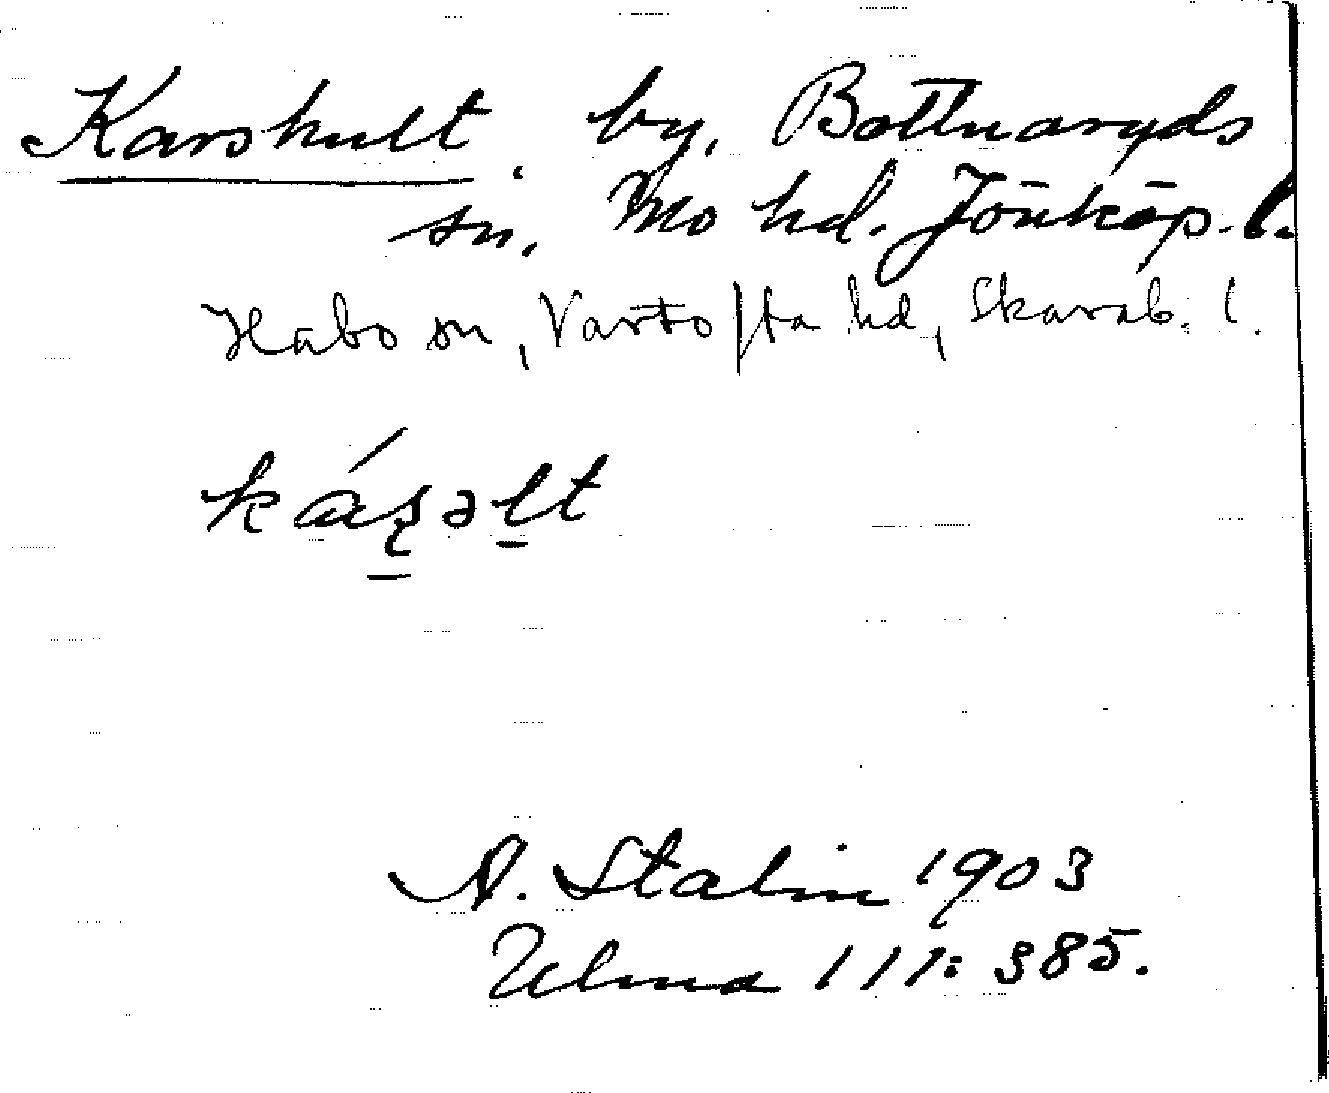 Karshult. by, Bottnaryds
sn. Mo hd. Jönköp. l.
Habo sn, Vartofta hd, Skarab. l.
A. Stalin 1903
Ulma 111: 385.